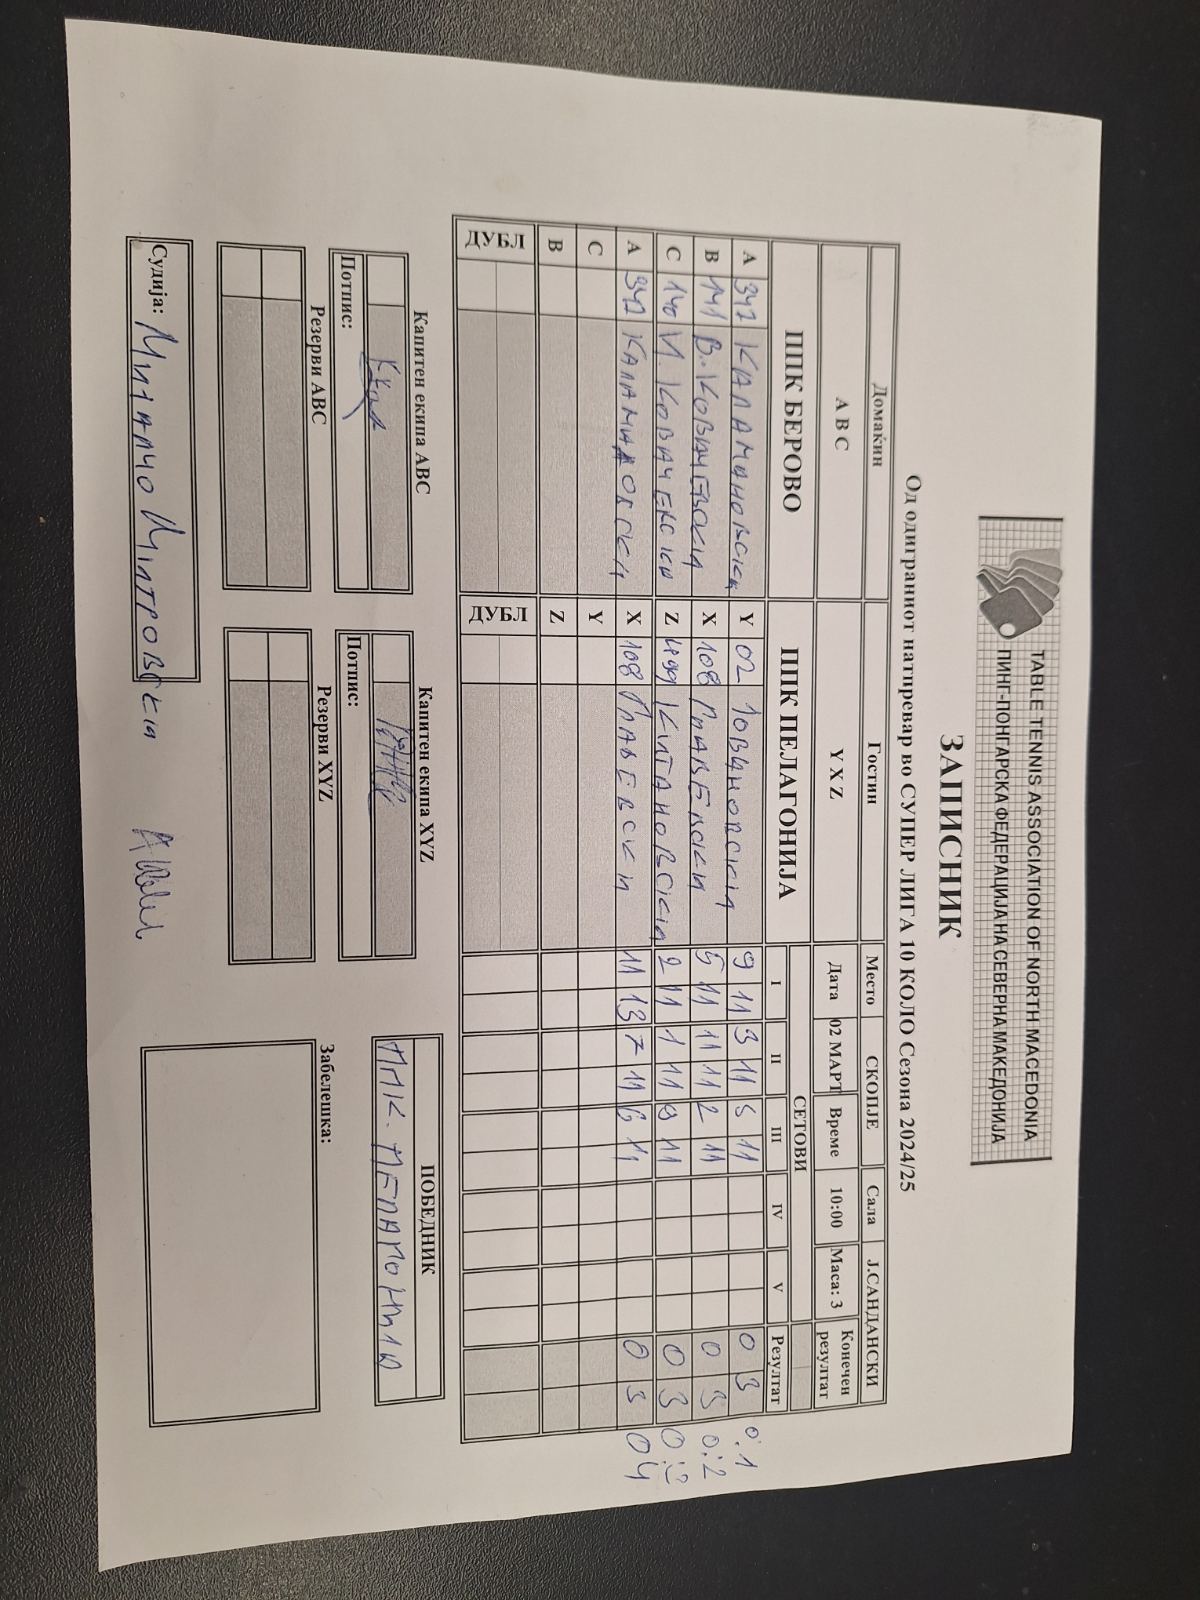 TABLE TENNIS ASSOCIATION OF NORTH MACEDONIA
ПИНГ-ПОНГАРСКА ФЕДЕРАЦИЈА НА СЕВЕРНА МАКЕДОНИЈА
ЗАПИСНИК
Од одиграниот натпревар во СУПЕР ЛИГА 10 КОЛО Сезона 2024/25
Домаќин Гостин Место СКОПЈЕ Сала Ј.САНДАНСКИ
A B C Y X Z Дата 02 МАРТ Време 10:00 Маса: 3 Конечен резултат
ППК БЕРОВО ППК ПЕЛАГОНИЈА СЕТОВИ
I II III IV V Резултат
A 342 КАЛАМАНОВСКИ Y 02 ЈОВАНОВСКИ 9 11 3 11 5 11 0 3 0:1
B 141 В.КОВАЧЕВСКИ X 108 ПЛАВЕВСКИ 5 11 11 11 2 11 0 3 0:2
C 140 И.КОВАЧЕВСКИ Z 499 КИТАНОВСКИ 2 11 1 11 9 11 0 3 0:3
A 342 КАЛАМАНОВСКИ X 108 ПЛАВЕВСКИ 11 13 7 11 6 11 0 3 0 4
C Y
B Z
ДУБЛ ДУБЛ
Капитен екипа ABC Капитен екипа XYZ ПОБЕДНИК
ППК. ПЕЛАГОНИЈА
Потпис: Потпис:
Резерви ABC Резерви XYZ Забелешка:
Судија: МИХАЈЛЧО МИТРОВСКИ